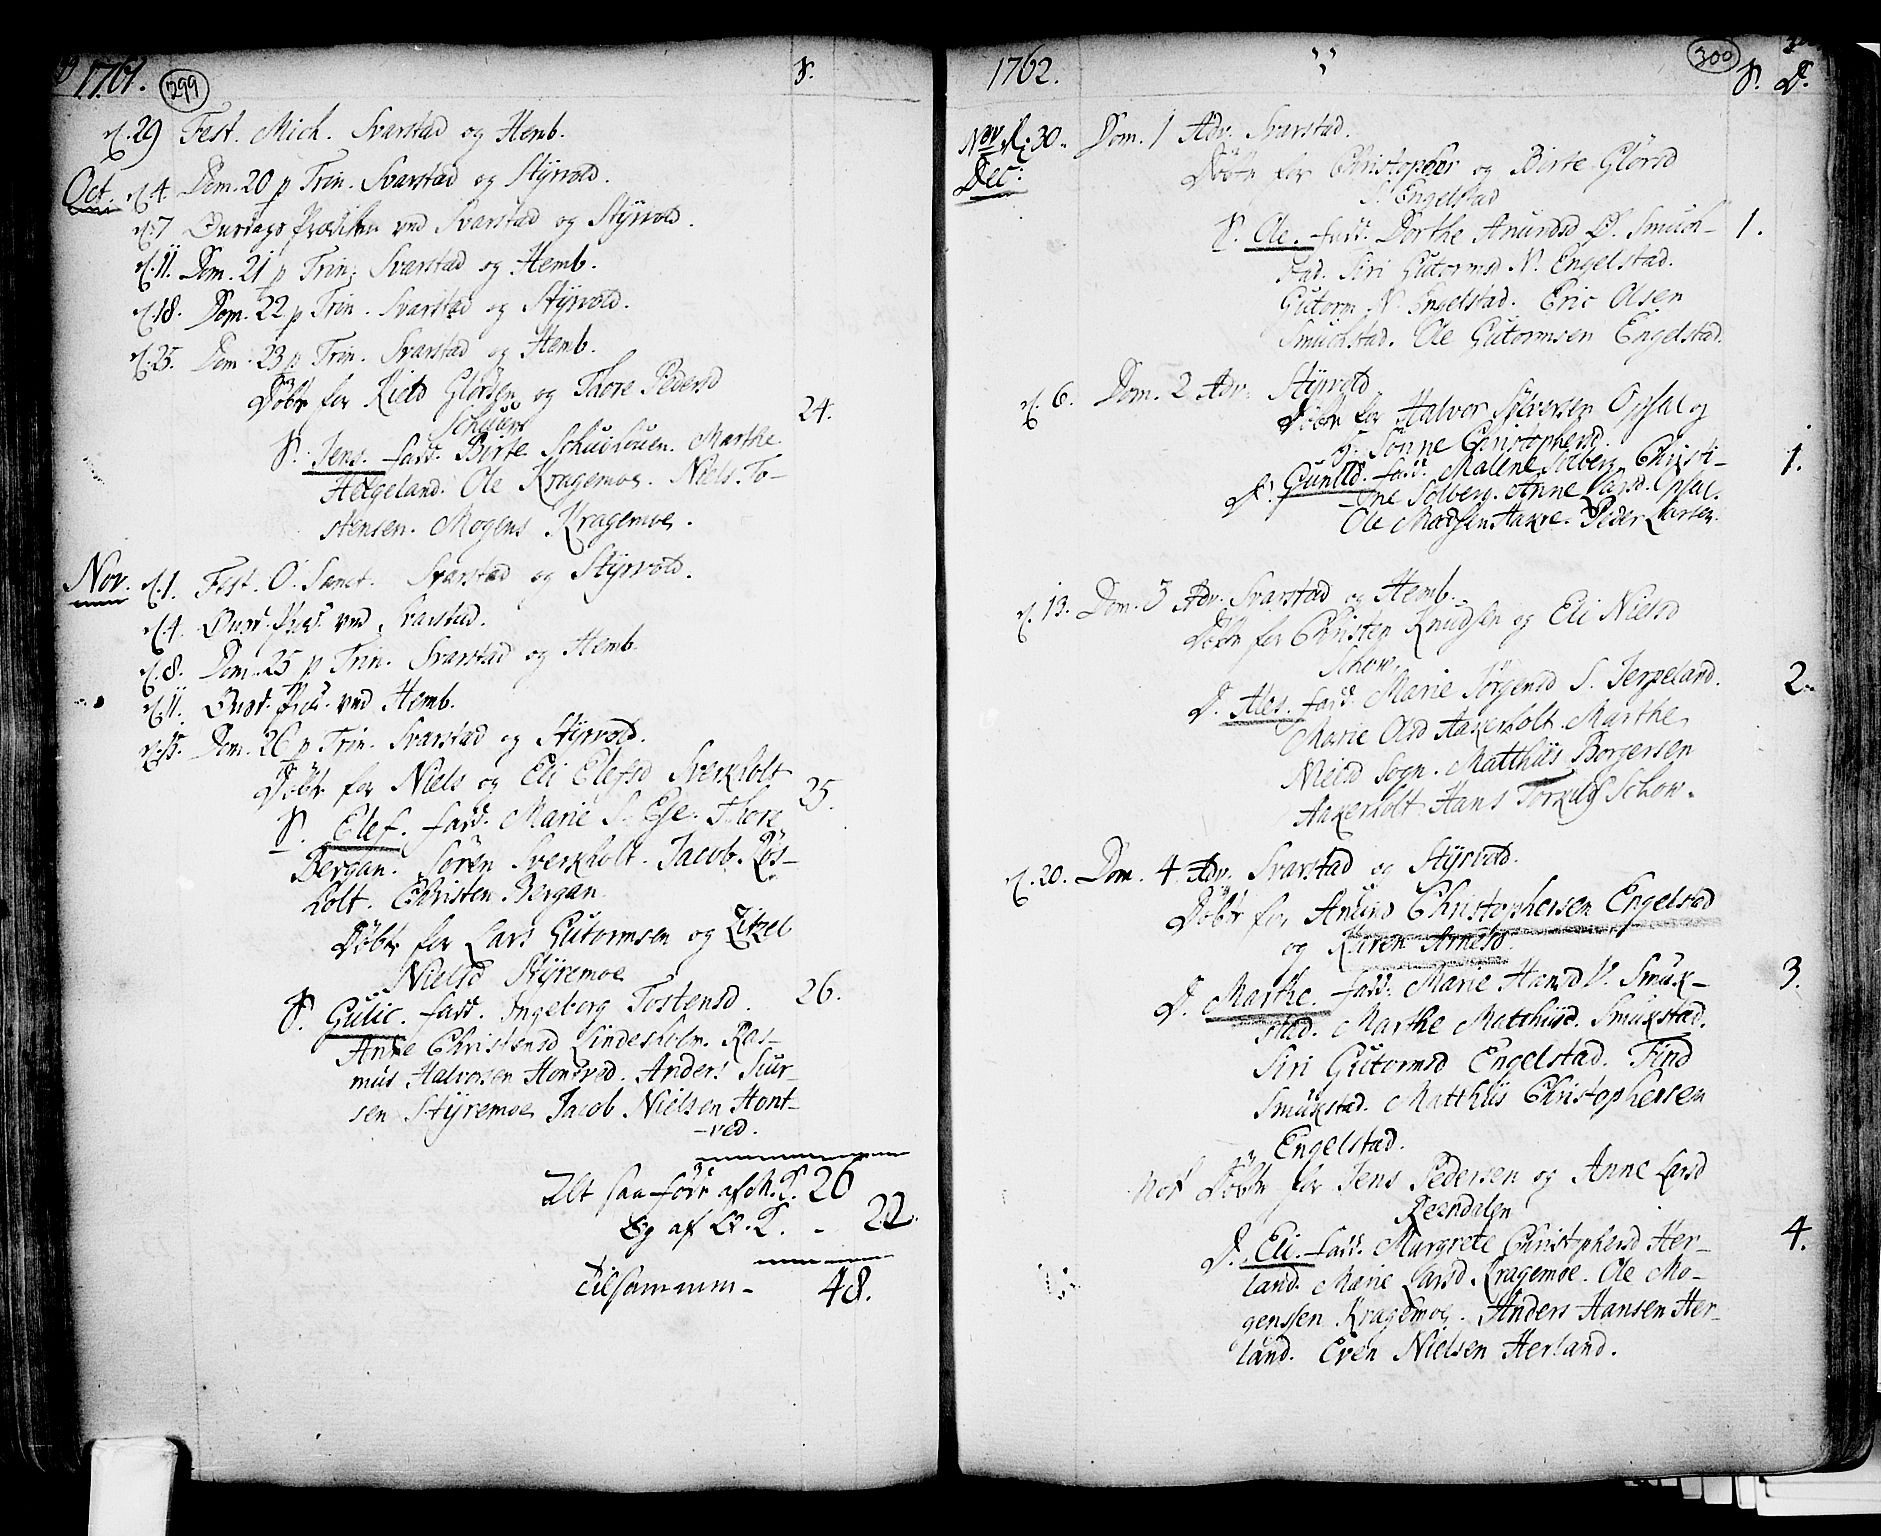 1761. 299 S.
d. 29 Fest. Mich. Svarstad og Hemb.
Oct. d. 4. Dom. 20 p Trin. Svarstad og Styrvold.
d. 7 Onsdags Prædiken ved Svarstad og Styrvold.
d. 11. Dom. 21 p Trin. Svarstad og Hemb.
d. 18. Dom. 22 p Trin. Svarstad og Styrvold.
d. 25. Dom. 23 p Trin. Svarstad og Hemb.
Döbt for Kield Glörsen og Thore Pedersd
24.
S. Jens. fadd. Birte Marthe
Helgeland. Ole Kragemoe. Niels To-
stensen. Mogens Kragemoe.
Nov. d. 1. Fest. O. Sanct. Svarstad og Styrvold.
d. 4. Onsd. Præd. ved Svarstad.
d. 8. Dom. 25 p Trin. Svarstad og Hemb.
d. 11. Onsd. Præd. ved Hemb.
d. 15. Dom. 26 p Trin. Svarstad og Styrvold.
Döbt for Niels og Eli Elefsd Sverkholt
25.
S. Elef. fadd. Marie S. Eje. Thore
Bergan. Sören Sverkholt. Jacob Rös-
holt. Christen Bergan.
Döbt for Lars Gutormsen og Zitzel
Nielsd Styremoe
26.
S. Gulic. fadd. Ingeborg Tostensd.
Anne Christensd Lindesholm. Ras-
mus Halvorsen Hontved. Anders Siur-
sen Styremoe Jacob Nielsen Hont-
-ved.
Alt saa födt af M.K. 26
Og af Q.K. - 22.
Tilsammen - 48.
1762. 300 S. D.
Nov. d. 30. Dom. 1 Adv. Svarstad.
Dec: Döbt for Christopher og Birte Glörsd
S. Engelstad
S. Ole. fadd. Dorthe Anundsd Ø. Smuch- 1.
stad. Siri Gutormsd N. Engelstad.
Gutorm N. Engelstad. Eric Olsen
Smuchstad. Ole Gutormsen Engelstad.
d. 6. Dom. 2 Adv. Styrvold
Döbt for Halvor Sölversen Opsal og
J. Sönne Christophersd.
D. Gunild. fadd. Malene Solberg. Christi- 1.
ne Solberg. Anne Larsd. Opsal.
Ole Madsen Aakre. Peder Larsen.
d. 13. Dom. 3 Adv. Svarstad og Hemb.
Döbt for Christen Knudsen og Eli Nielsd
Schow.
D. Ales. fadd. Marie Jörgensd S. Jerpeland. 2.
Marie Olsd Aakerholt. Marthe
Nielsd Sogn. Matthiis Borgersen
Aakerholt. Hans Torkilds. Schow.
d. 20. Dom. 4 Adv. Svarstad og Styrvold.
Döbt for Anund Christophersen Engelstad
og Karen Arnesd.
D. Marthe. fadd. Marie Hansd V. Smuk- 3.
stad. Marthe Matthiisd. Smukstad.
Siri Gutormsd Engelstad. Find
Smukstad. Matthiis Christophersen
Engelstad.
Nok Döbt for Jens Pedersen og Anne Larsd
D. Eli. fadd. Margrete Christophersd Her- 4.
land. Marie Larsd Kragemoe. Ole Mo-
genssen Kragemoe. Anders Hansen Her-
land. Even Nielsen Herland.